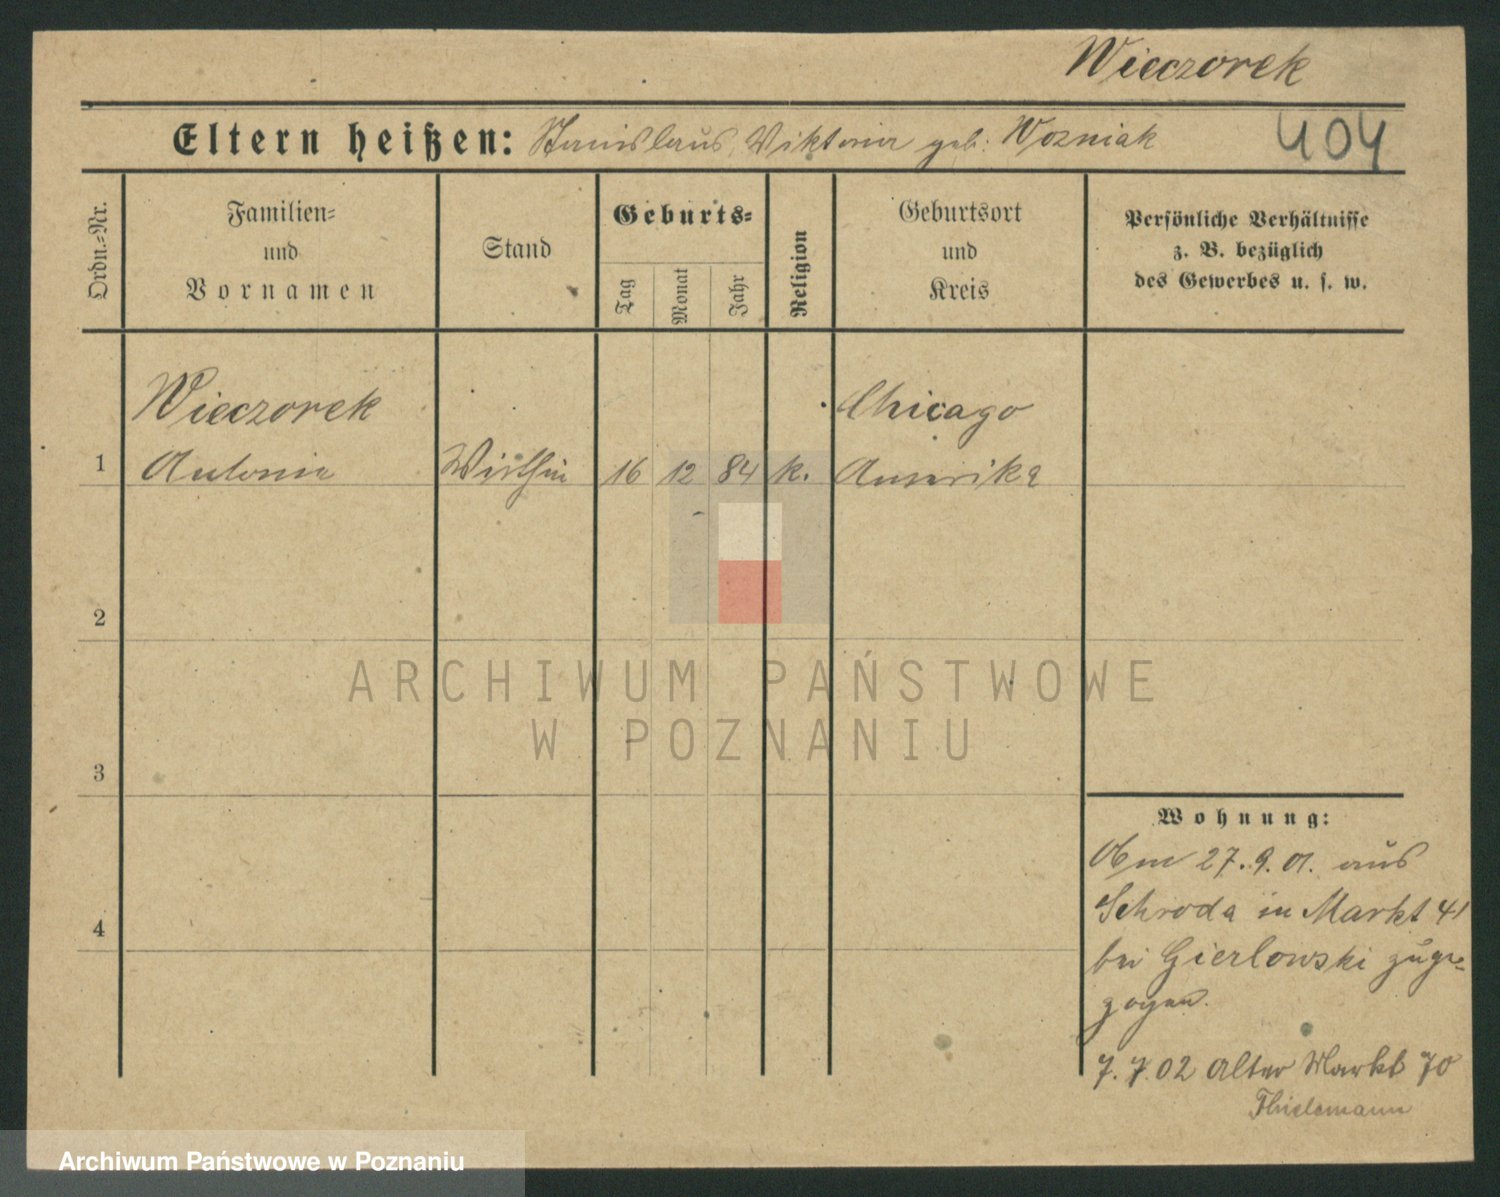 Wieczorek
Eltern heißen: Stanislaus, Viktoria geb: Wozniak
404
Ordn.=Nr.
Familien=
und
Vornamen
Stand
Geburts=
Tag
Monat
Jahr
Religion
Geburtsort
und
Kreis
Persönliche Verhältnisse
z. B. bezüglich
des Gewerbes u. s. w.
Wieczorek
Chicago
1 Antonie Wirthin 16 12 84 k. Amerika
2
ARCHIWUM PAŃSTWOWE
W POZNANIU
3
Wohnung:
Am 27.9.01. aus
Schroda in Markt 41
4
bei Gierlowski zuge=
zogen.
7.7.02 Alter Markt 70
Thielemann
Archiwum Państwowe w Poznaniu